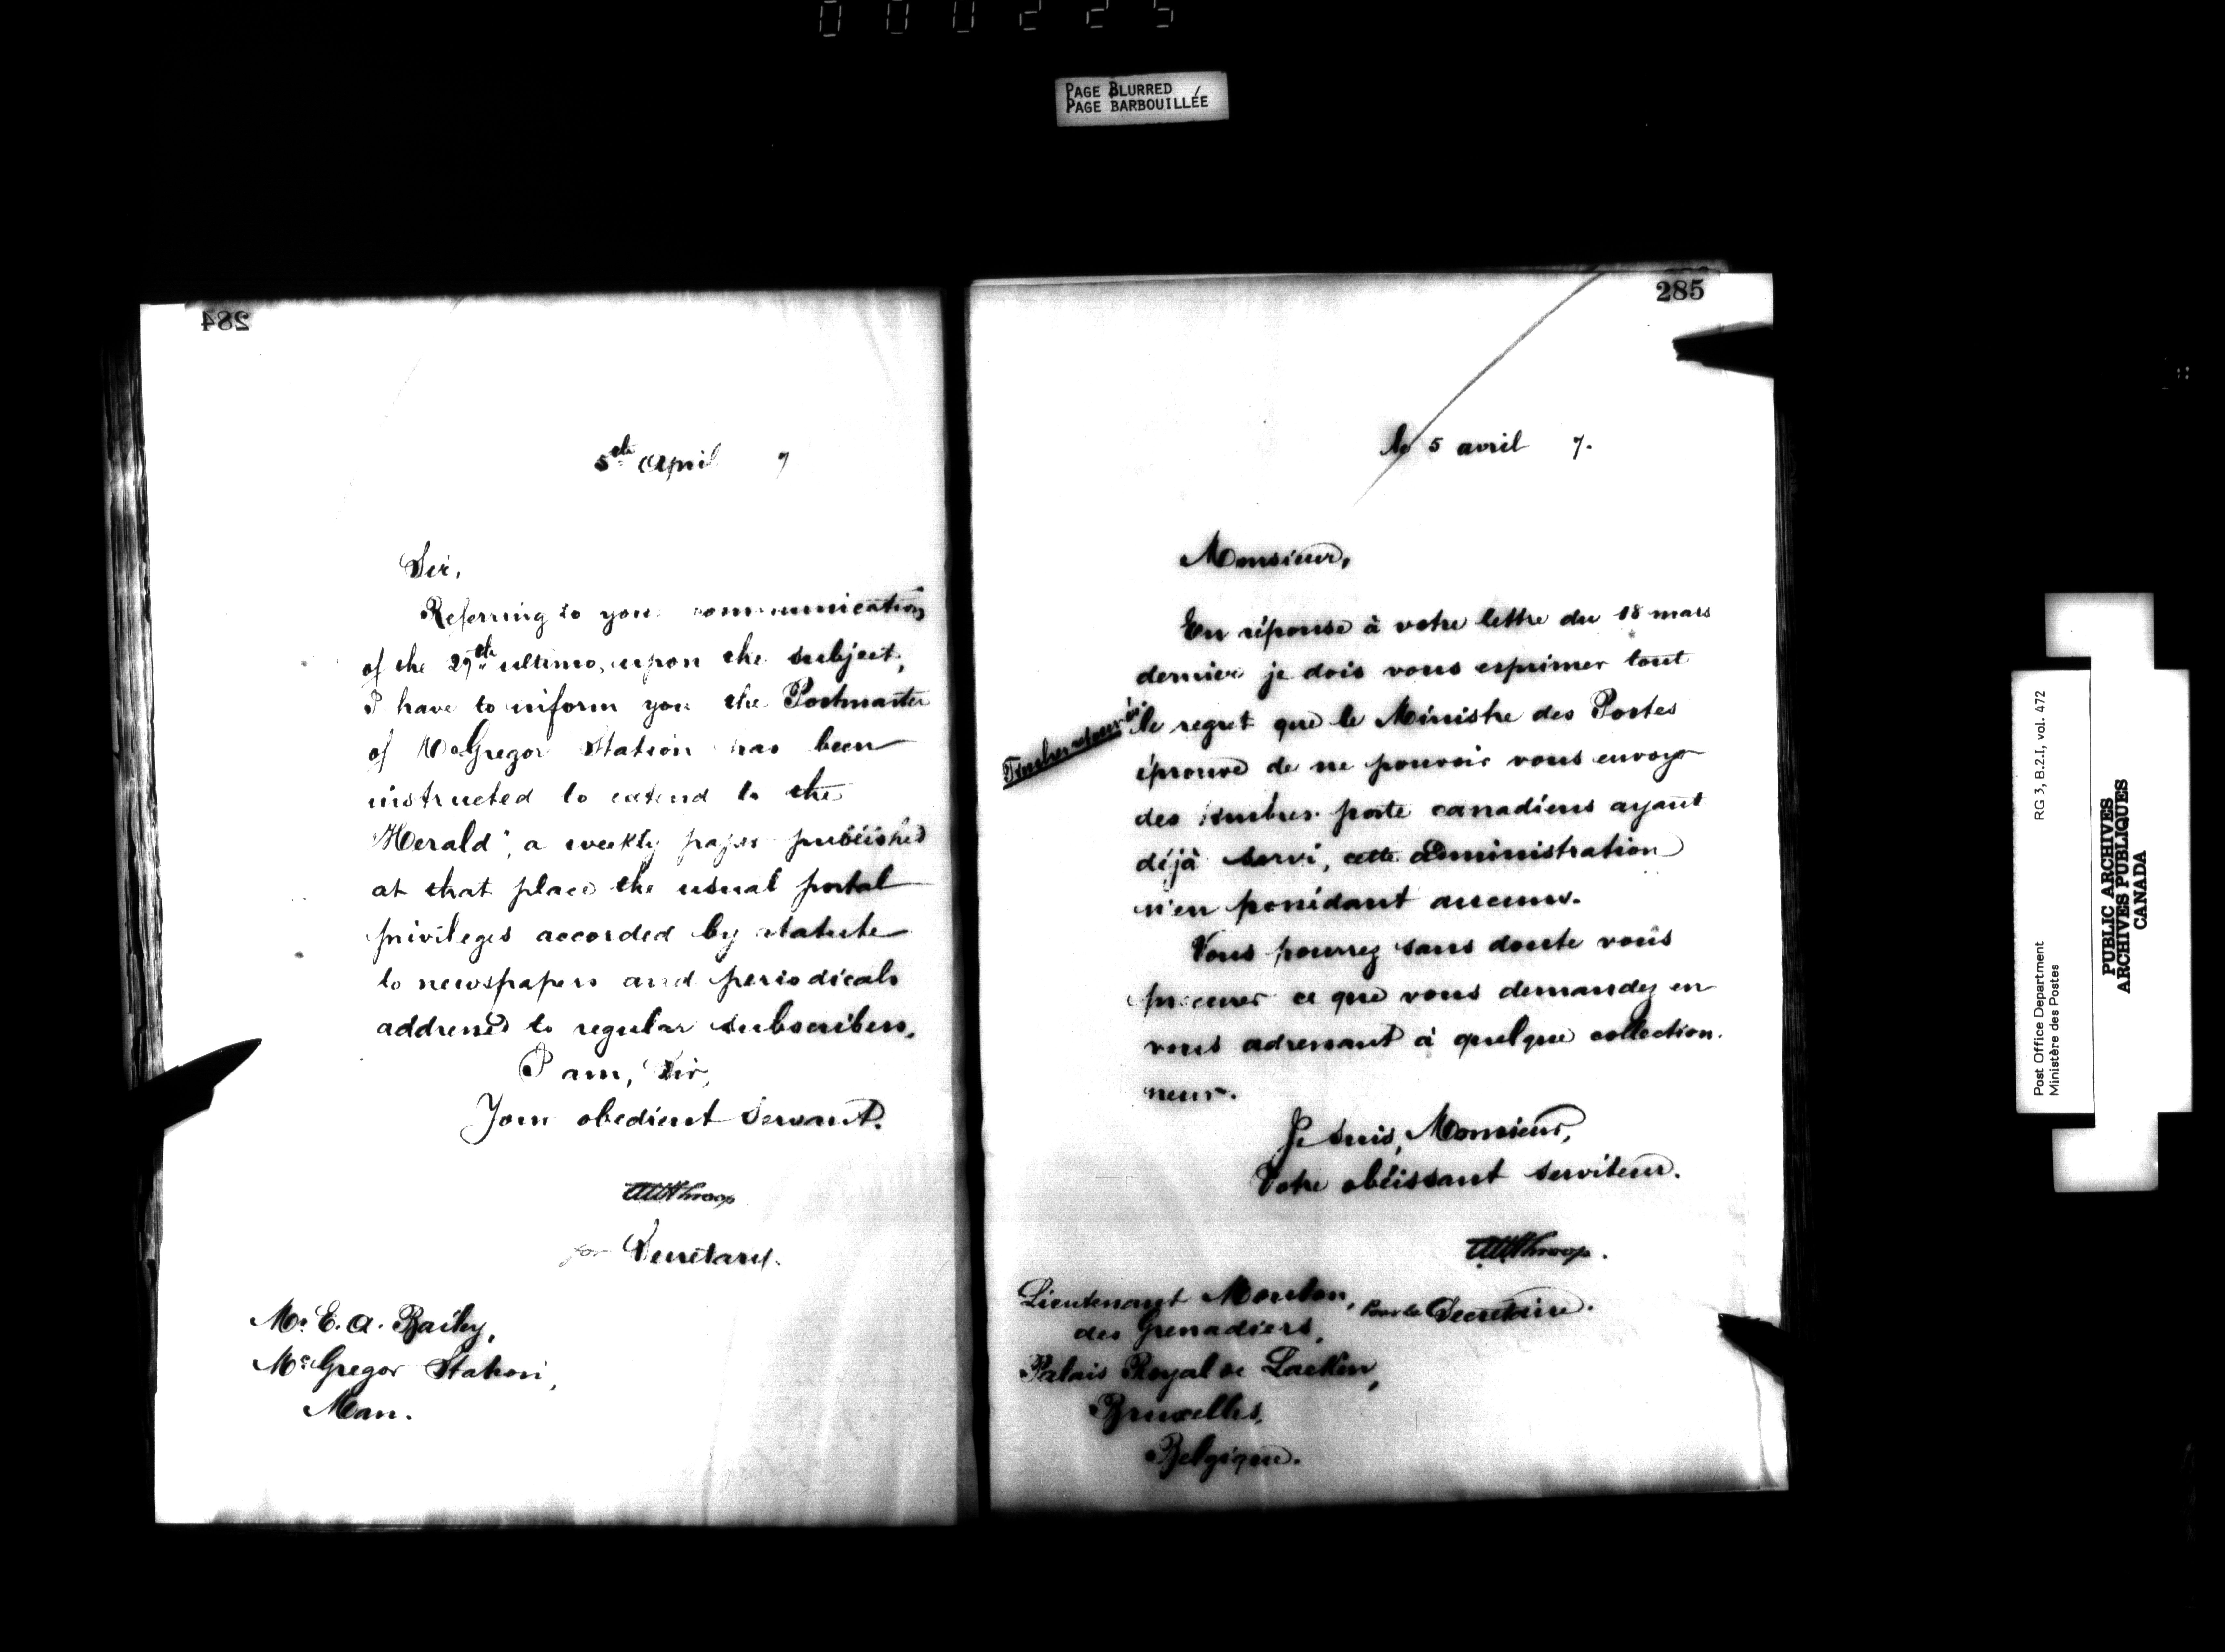 000225
PAGE BLURRED
PAGE BARBOUILLÉE
284
5th April 7
Sir,
Referring to your communication
of the 29th ultimo, upon the subject,
I have to inform you the Postmaster
of McGregor Station has been
instructed to extend to the
"Herald", a weekly paper published
at that place the usual postal
privileges accorded by statute
to newspapers and periodicals
addressed to regular subscribers.
I am, Sir,
Your obedient Servant.
Throop
for Secretary.
Mr. E. A. Bailey,
McGregor Station,
Man.
285
le 5 avril 7.
Monsieur,
En réponse à votre lettre du 18 mars
dernier je dois vous exprimer tout
le regret que le Ministre des Postes
éprouve de ne pouvoir vous envoyer
des timbres poste canadiens ayant
déjà servi, cette administration
n'en possédant aucuns.
Vous pourrez sans doute vous
procurer ce que vous demandez en
vous adressant à quelque collection-
neur.
Je suis, Monsieur,
Votre obéissant serviteur.
Throop.
Pour le Secrétaire.
Lieutenant Moulon,
des Grenadiers,
Palais Royal de Laeken,
Bruxelles,
Belgique.
Post Office Department
Ministère des Postes
RG 3, B.2.I, vol. 472
PUBLIC ARCHIVES
ARCHIVES PUBLIQUES
CANADA